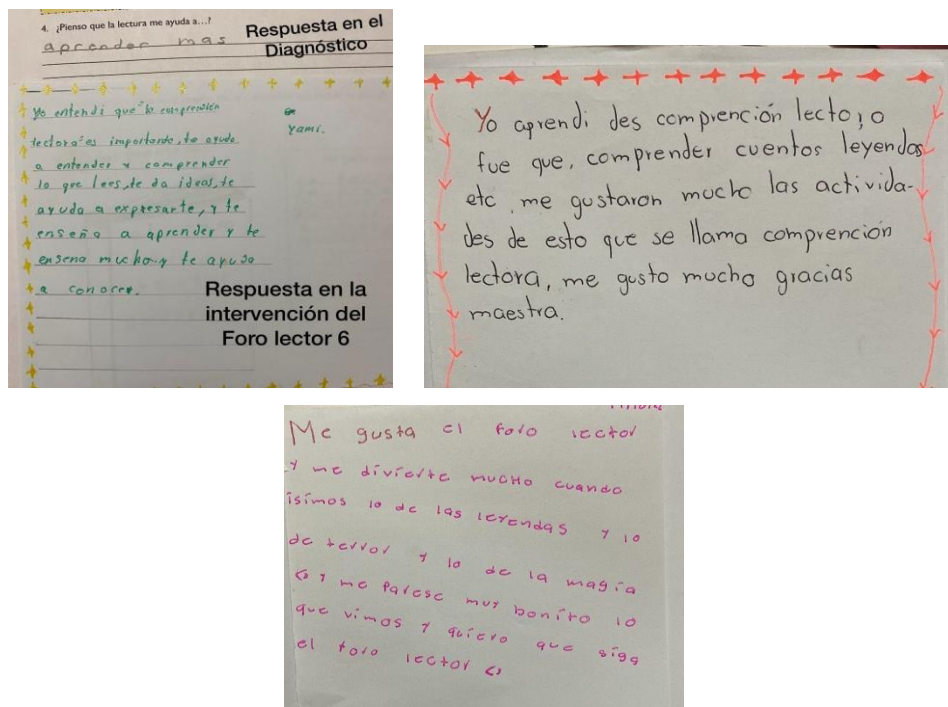 4. ¿Pienso que la lectura me ayuda a...?
aprender mas
Respuesta en el
Diagnóstico
Yo entendi que la comprension
lectora es importante, te ayuda
a entender y comprender
lo que lees, te da ideas, te
ayuda a expresarte, y te
enseña a aprender y te
enseña mucho y te ayuda
a conocer.
Yami.
Respuesta en la
intervención del
Foro lector 6
Yo aprendi des comprención lectora
fue que, comprender cuentos leyendas
etc, me gustaron mucho las activida-
des de esto que se llama comprención
lectora, me gusto mucho gracias
maestra.
Me gusta el foro lector
y me divierte mucho cuando
isimos lo de las leyendas y lo
de terror y lo de la magia
y me parese muy bonito lo
que vimos y quiero que siga
el foro lector